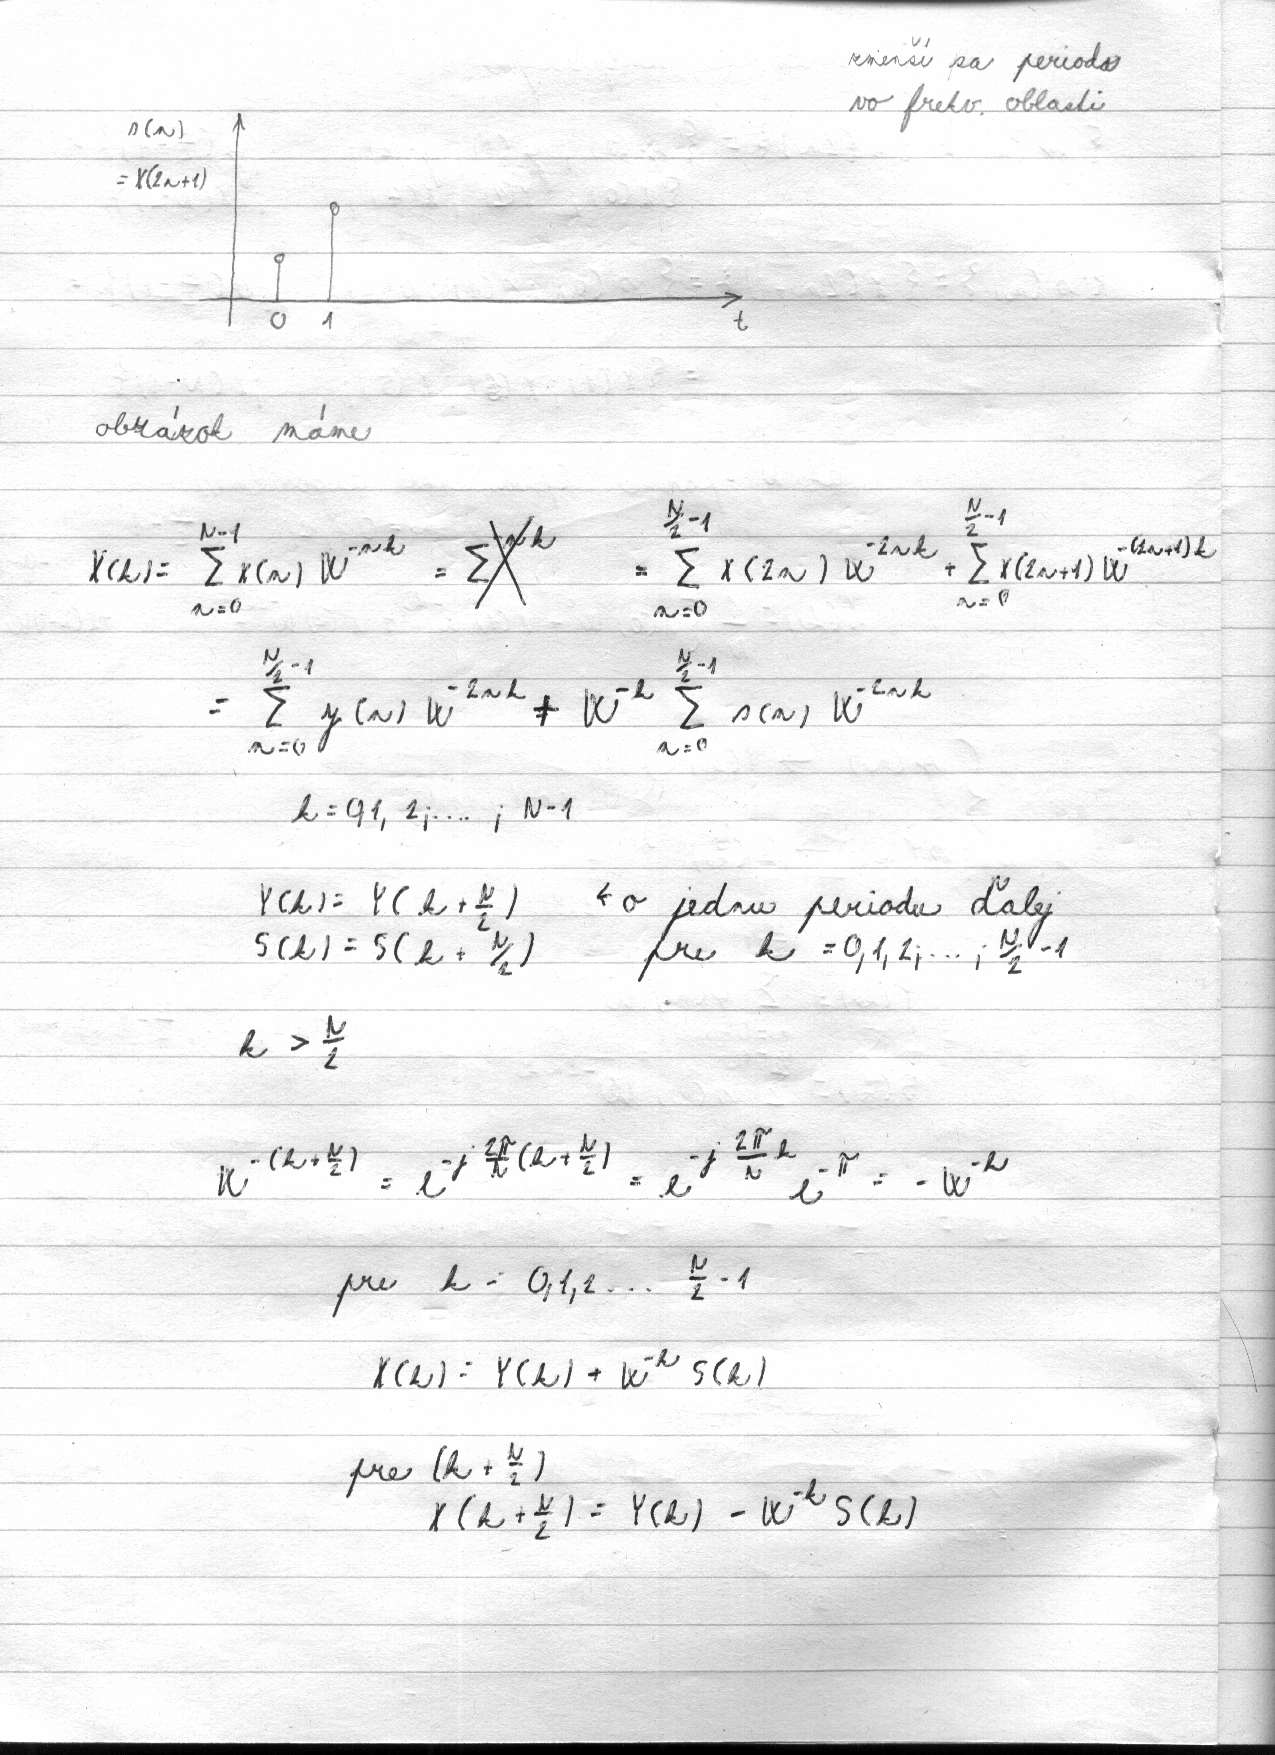 zmenší sa perioda
vo frekv. oblasti
s(n)
= x(2n+1)
0 1 t
obrázok máme
X(k) = ∑_{n=0}^{N-1} x(n) W^{-nk} = ∑ = ∑_{n=0}^{N/2-1} x(2n) W^{-2nk} + ∑_{n=0}^{N/2-1} x(2n+1) W^{-(2n+1)k}
= ∑_{n=0}^{N/2-1} y(n) W^{-2nk} + W^{-k} ∑_{n=0}^{N/2-1} s(n) W^{-2nk}
k = 0,1, 2,.... , N-1
Y(k) = Y(k + N/2) ← o jednu periodu ďalej
S(k) = S(k + N/2) pre k = 0,1,2,...,N/2 -1
k > N/2
W^{-(k+N/2)} = e^{-j 2π/N (k+N/2)} = e^{-j 2π/N k} e^{-π} = - W^{-k}
pre k = 0,1,2 .... N/2 -1
X(k) = Y(k) + W^{-k} S(k)
pre (k + N/2)
X(k + N/2) = Y(k) - W^{-k} S(k)